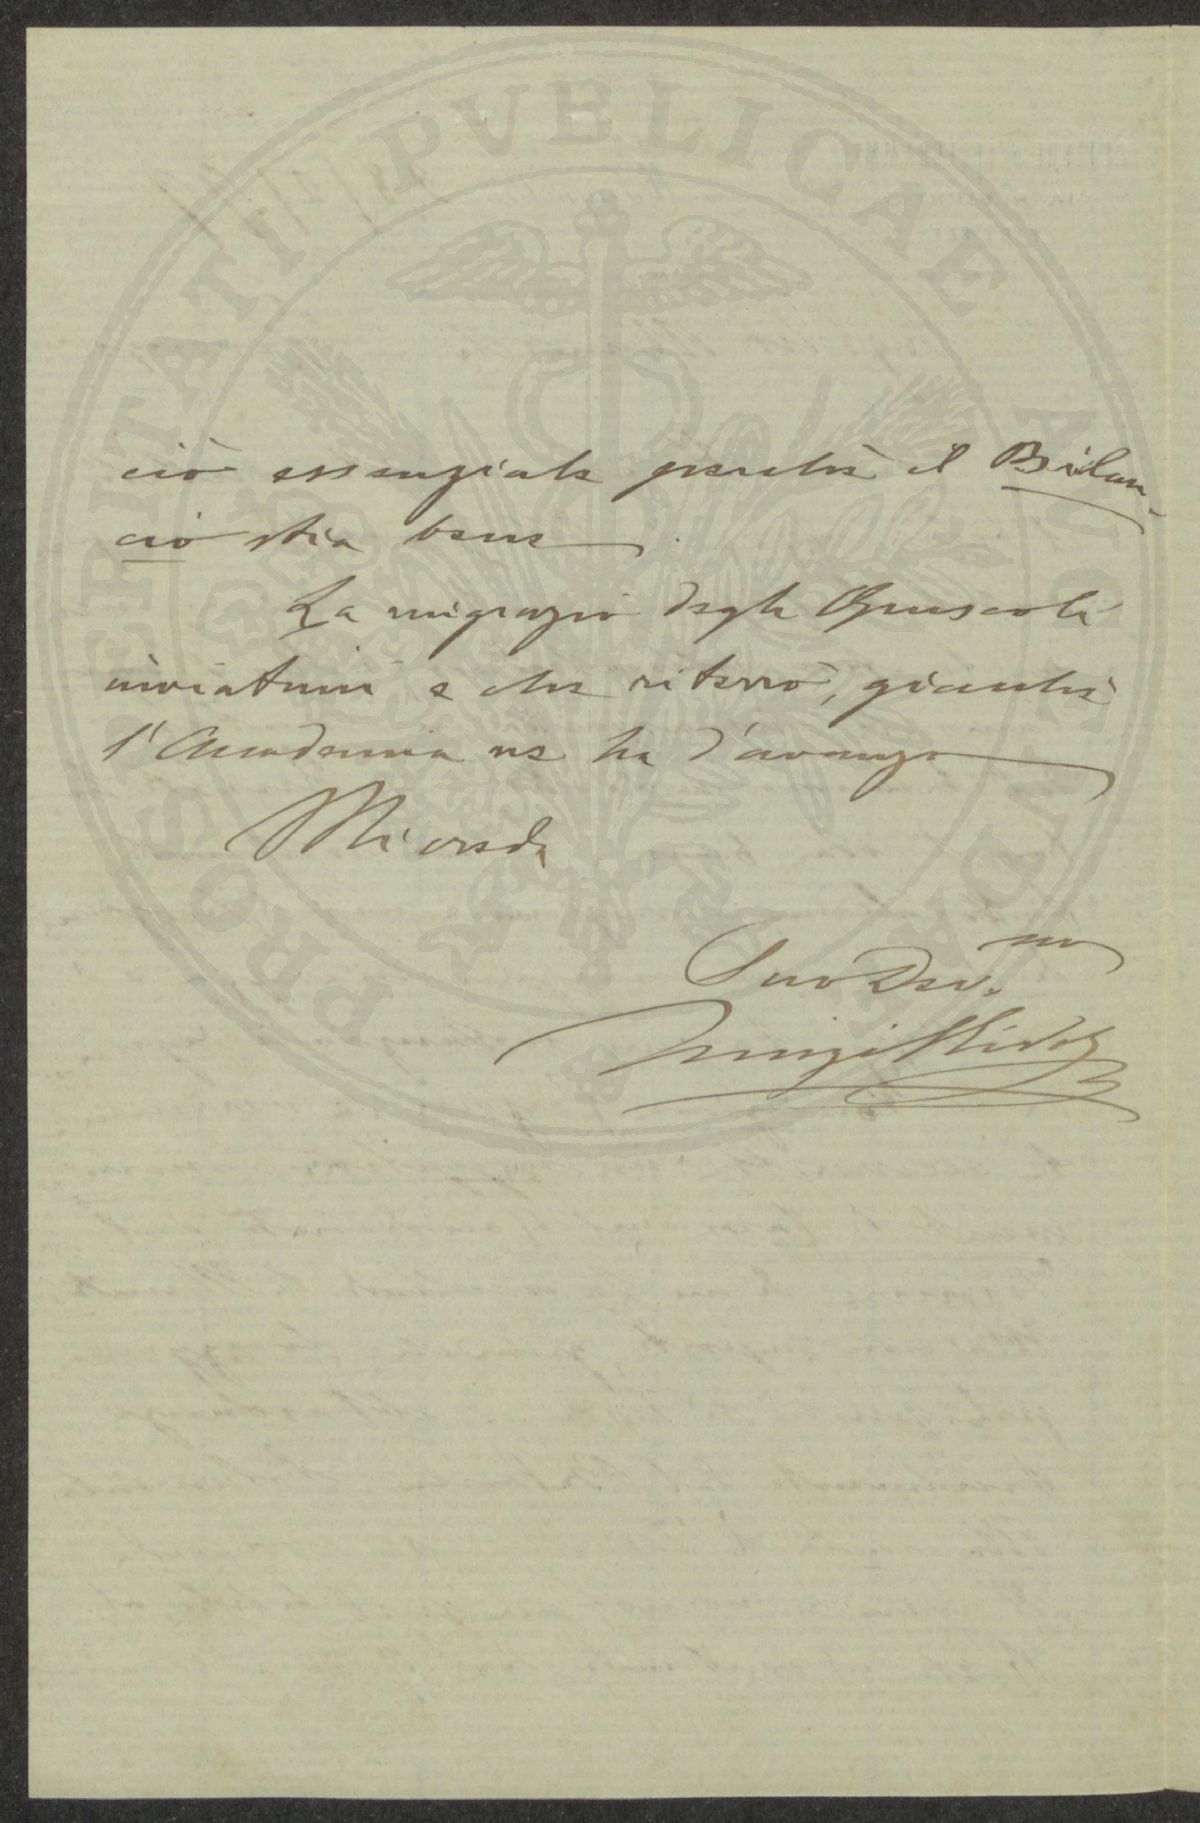 PROSPERITATI PVBLICAE AVGENDAE
ciò essenziale perchè il Bilan-
cio stia bene
La ringrazio degli Opuscoli
inviatimi e che riterrò, giacchè
l'Accademia ne ha d'avanzo
Mi creda
Suo Dev.mo
Luigi